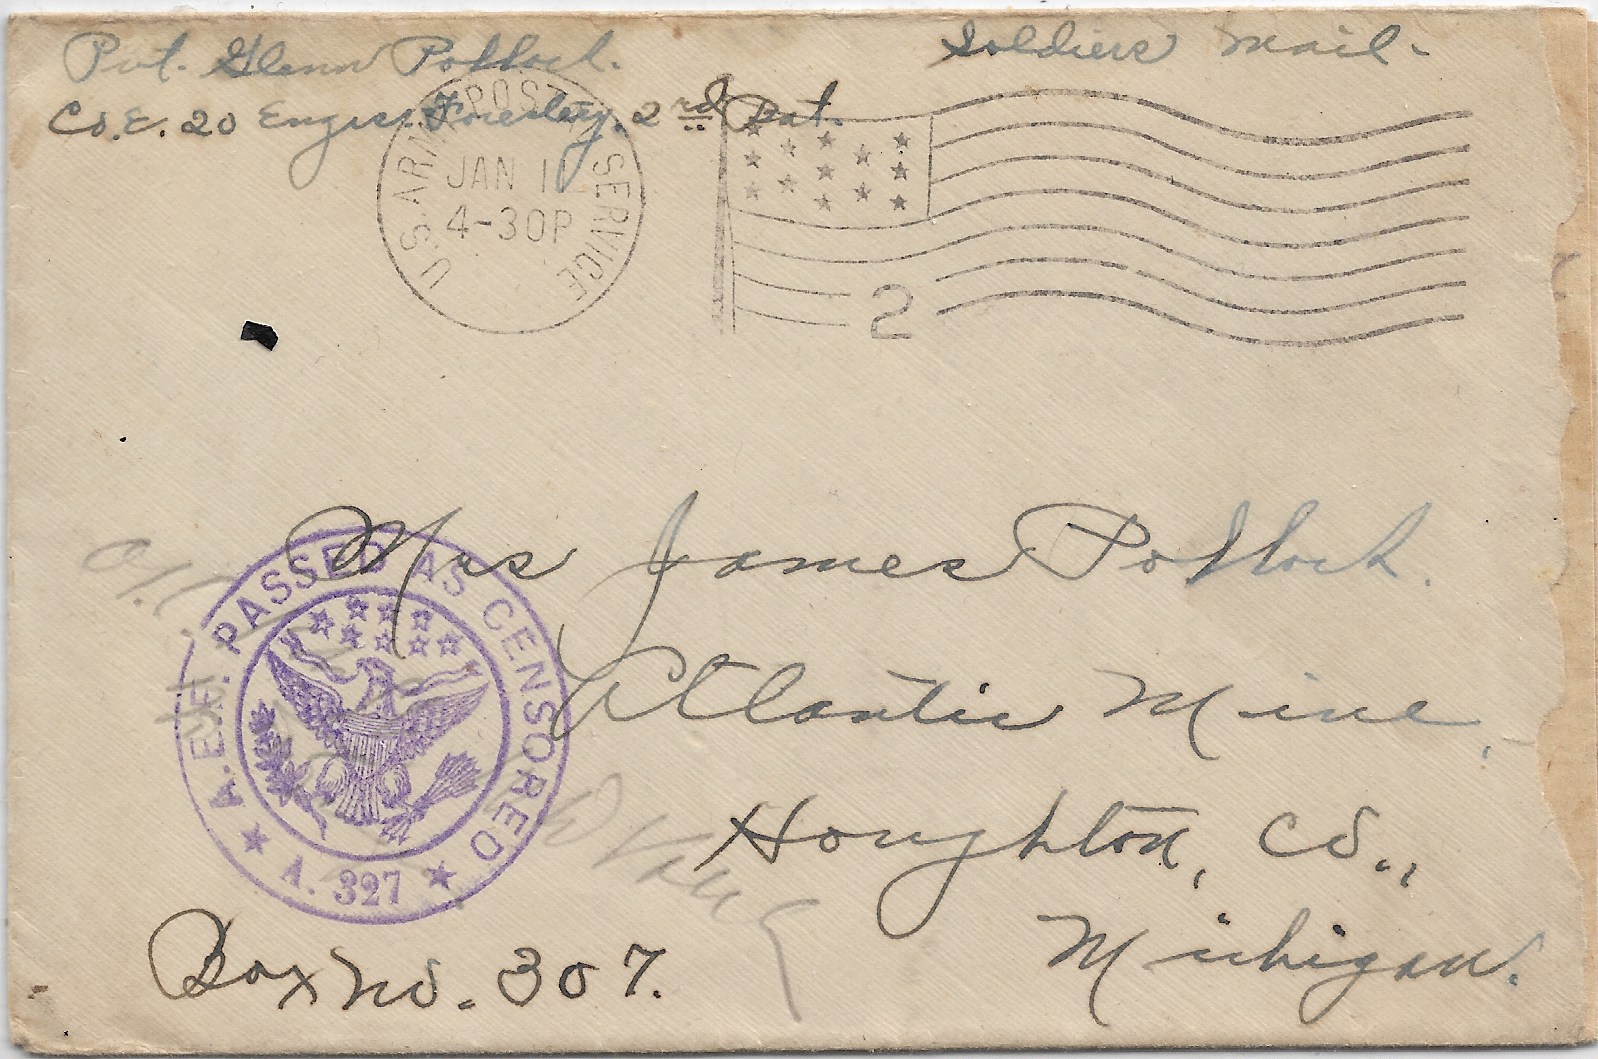 Pvt. Glenn Pollock.
Soldiers Mail-
Co. E. 20 Engrs. Forestry. 2nd Bat.
U.S. ARMY POST SERVICE
JAN 11
4-30P
2
Mrs James Pollock.
Atlantic Mine,
Houghton, Co.,
Michigan.
Box No. 307.
A.E.F. PASSED AS CENSORED
A. 327